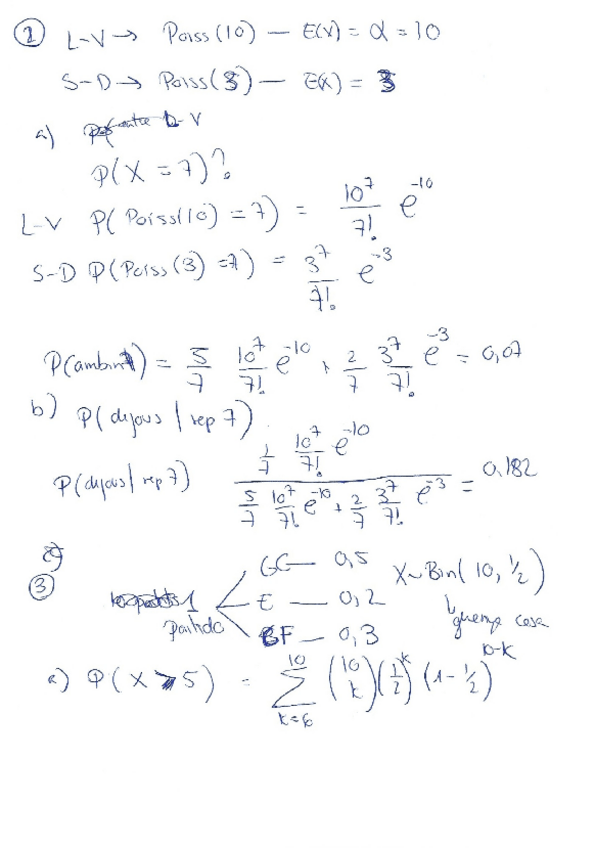 ② L-V → Poiss(10) — E(X) = α = 10
S-D → Poiss(3) — E(X) = 3
a)
P(X = 7)?
L-V P(Poiss(10) = 7) = 10^7/7! e^-10
S-D P(Poiss(3) = 7) = 3^7/7! e^-3
P(ambin 7) = 5/7 10^7/7! e^-10 + 2/7 3^7/7! e^-3 = 0,07
b) P(dijous | rep 7)
P(dijous | rep 7) (1/7 10^7/7! e^-10) / (5/7 10^7/7! e^-10 + 2/7 3^7/7! e^-3) = 0,182
c)
③ 1 partido
GC — 0,5 X~Bin(10, 1/2)
E — 0,2
BF — 0,3
↳ guanya casa
a) P(X > 5) = Σ_{k=6}^{10} (10 k) (1/2)^k (1-1/2)^{10-k}